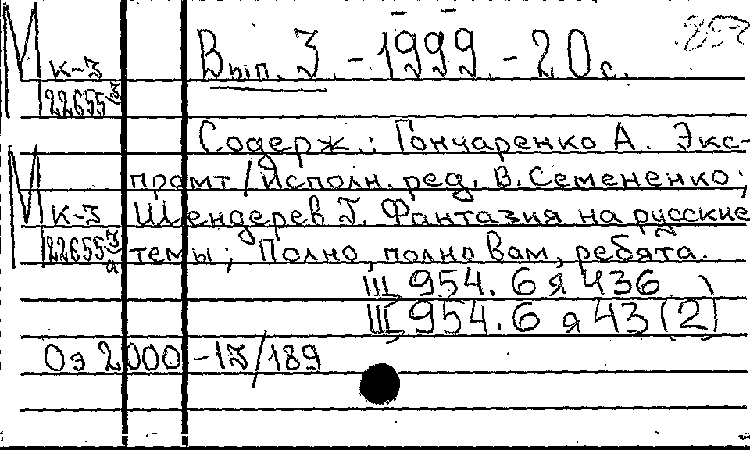 М К-3 Вып. 3. - 1999. - 20 с.
22655 3
Содерж.: Гончаренко А. Экс-
промт / Исполн. ред. В. Семененко;
М К-3 Шендерев Г. Фантазия на русские
22655 3/а темы; Полно, полно вам, ребята.
Щ 954. 6 я 436
Щ 954. 6 я 43 (2)
Оэ 2000 - 13/189